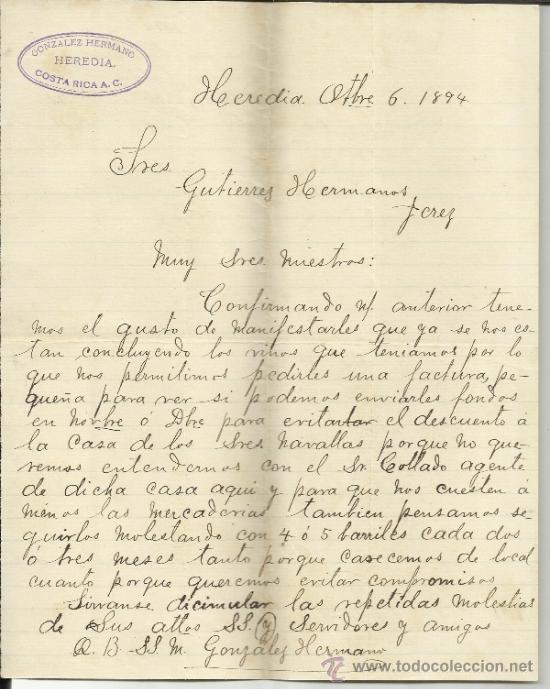 GONZALEZ HERMANO
HEREDIA.
COSTA RICA A. C.
Heredia Otbre 6. 1894
Sres
Gutierres Hermanos
Jerez
Muy Sres. nuestros:
Confirmando n/. anterior tene-
mos el gusto de manifestarles que ya se nos es-
tan concluyendo los vinos que teniamos por lo
que nos permitimos pedirles una factura, pe-
queña para ver si podemos enviarles fondos
en Novbre ó Dbre para evitar el descuento á
la Casa de los Sres Navallas porque no que-
remos entendernos con el Sr. Collado agente
de dicha casa aqui y para que nos cuesten á
menos las mercaderias tambien pensamos se-
guirlos molestando con 4 ó 5 barriles cada dos
ó tres meses tanto porque carecemos de local
cuanto porque queremos evitar compromisos
Sirvanse dicimular las repetidas molestias
de Sus attos SS. (y) Servidores y amigos
Q. B. SS. M. González Hermano
todocoleccion
www.todocoleccion.net